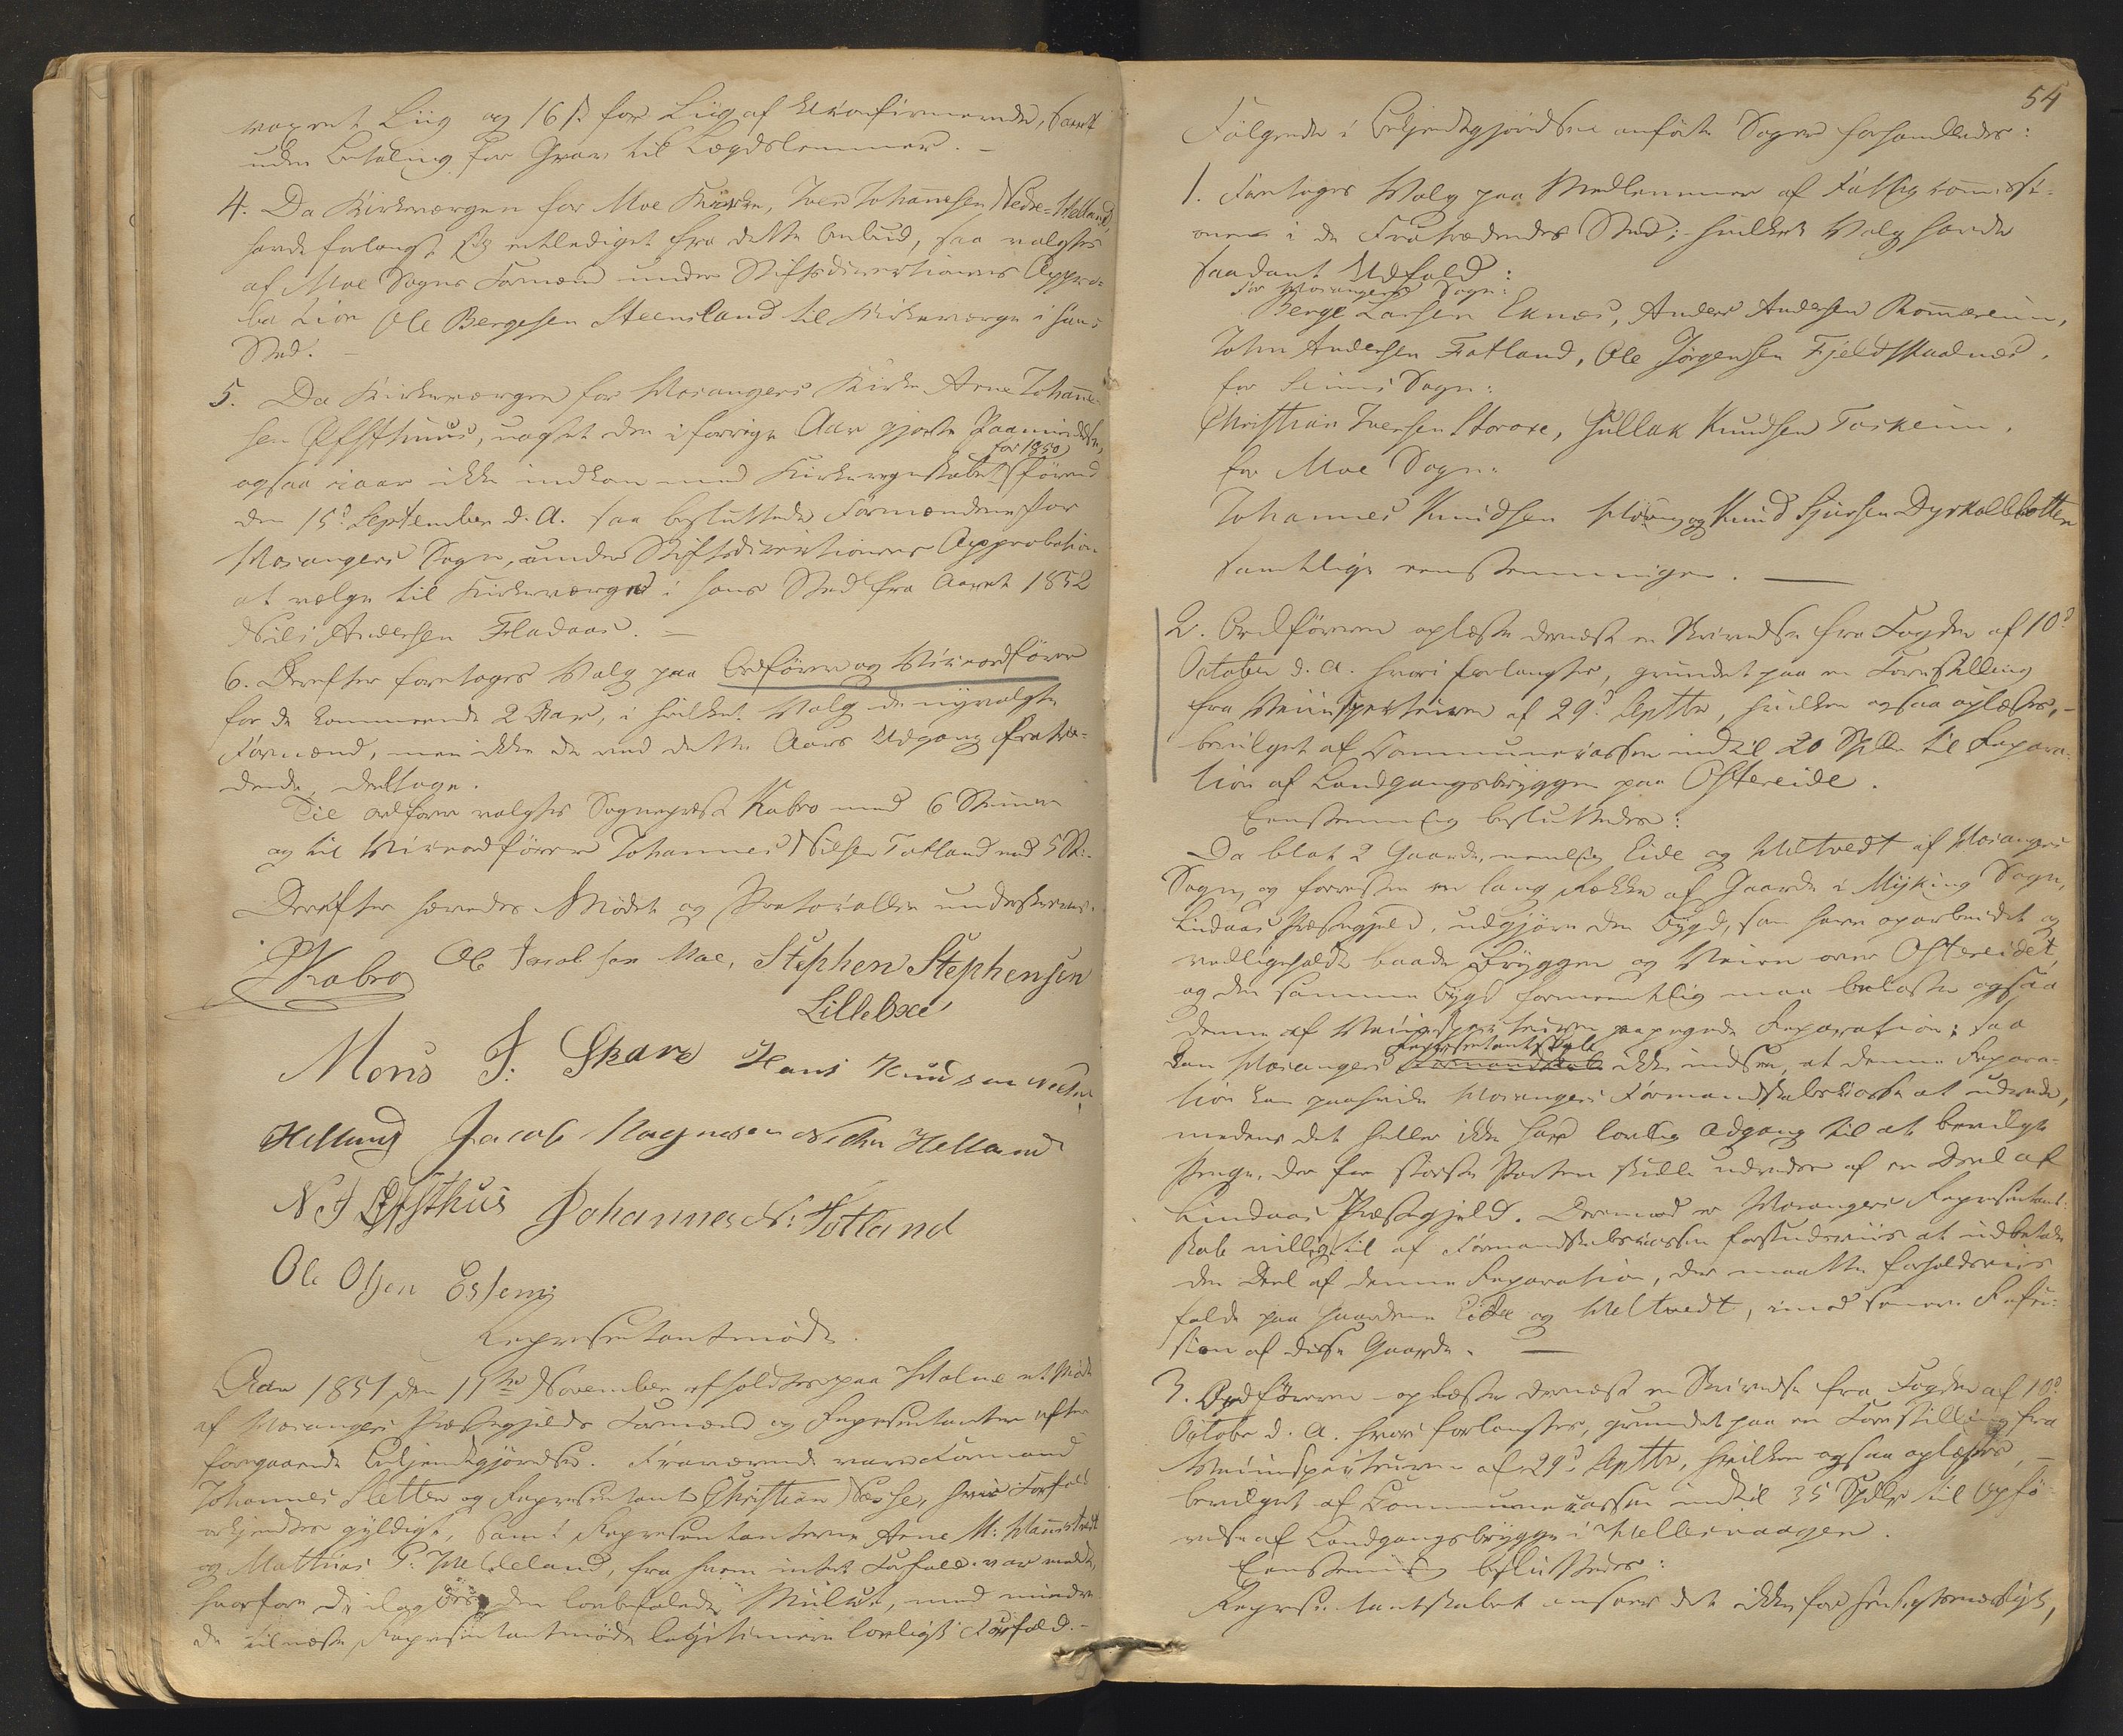 voxent Liig og 16 s for Liig af Ukonfirmerede, samt
uden Betaling for Grav til Lægdslemmer. –
4. Da Kirkeværgen for Moe Kirke, Iver Johannesen Nedre-Helland,
havde forlangt sig entlediget fra dette Ombud, saa valgtes
af Moe Sogns Formænd under Stiftsdirectionens Appro-
bation Ole Bergesen Steensland til Kirkeværge i hans
Sted. –
5. Da Kirkeværgen for Hosangers Kirke Arne Johanne-
sen Øfsthuus, uagtet den i forrige Aar gjorte Paamindelse,
ogsaa iaar ikke indkom med Kirkeregnskabet for 1850 førend
den 15d September d. A. saa besluttede Formændene for
Hosangers Sogn, under Stiftsdirectionens Approbation
at vælge til Kirkeværge i hans Sted fra Aaret 1852
Nils Andersen Fladaas. –
6. Derefter foretoges Valg paa Ordfører og Viceordfører
for de kommende 2 Aar, i hvilket Valg de nyvalgte
Formænd, men ikke de ved dette Aars Udgang fratræ-
dende, deeltage.
Til Ordfører valgtes Sognepræst Kobro med 6 Stemmer
og til Viceordfører Johannes Nilsen Totland med 5 St:
Derefter hævedes Mødet og Protocollen underskreves.
Kobro Ole Jacobsen Moe, Stephen Stephensen
Lillebøe
Mons J. Skare Hans Knudsen Nedre
Helland Jacob Magnesen Nedre Helland
N J Øfsthus Johannes N: Totland
Ole Olsen Eslem
Repræsentantmøde.
Aar 1851 den 11te November afholdtes paa Holme et Møde
af Hosangers Præstegjelds Formænd og Repræsentanter efter
foregaaende Bekjendtgjørelse. Fraværende vare Formand
Johannes Sletten og Repræsentant Christian Næsse, hvis Forfald
erkjendtes gyldigt, samt Repræsentanterne Arne M: Mannstvedt
og Mathias P. Helleland, fra hvem intet Forfald var meldt,
hvorfor de ilagdes den lovbefalede Mulct, med mindre
de tilnæste Repræsentantmøde legitimere lovligt Forfald. –
54
Følgende i Bekjendtgjørelsen anførte Sager forhandledes:
1. Foretoges Valg paa Medlemmer af Fattigcommissi-
onen i de Fratrædendes Sted; hvilket Valg havde
saadant Udfald:
For Hosangers Sogn:
Berge Larsen Eknæs, Anders Andersen Romareim,
John Andersen Fatland, Ole Jørgensen Fjeldskaalnæs.
for Seims Sogn:
Christian Iversen Storoxe, Gullak Knudsen Taskeim.
for Moe Sogn:
Johannes Knudsen og Knud Sjursen Dyrkolbotten
samtlige eenstemmigen. —
2. Ordføreren oplæste dernæst en Skrivelse fra Fogden af 10d
October d. A. hvori forlangtes, grundet paa en Forestilling
fra Veiinspecteuren af 29d Septbr, hvilken ogsaa oplæstes, –
bevilget af Communecassen indtil 20 Spdlr til Repara-
tion af Landgangsbryggen paa Ostereide.
Eenstemmig besluttedes:
Da blot 2 Gaarde, nemlig Eide og Meltvedt af Hosangers
Sogn, og forresten en lang Række af Gaarde i Myking Sogn,
Lindaas Præstegjeld, udgjøre den Bygd, som have oparbeidet og
vedligeholdt baade Bryggen og Veien over Ostereidet,
og den samme Bygd formeentlig maa bekoste ogsaa
denne af Veiinspecteuren paapegede Reparation; saa
kan Hosangers Repræsentantskab ikke indsee, at denne Repara-
tion kan paahvile Hosangers Formandskabskasse at udrede,
medens det heller ikke har lovlig Adgang til at bevilge
Penge, der for største Parten skulle udredes af en Deel af
Lindaas Præstegjeld. Derimod er Hosangers Repræsentant-
skab villig til af Formandskabscassen forskudsviis at udbetale
den Deel af denne Reparation, der maatte forholdsviis
falde paa Gaardene Eide og Meltvedt, imod senere Refu-
sion af disse Gaarde. —
3. Ordføreren oplæste dernæst en Skrivelse fra Fogden af 10d
Octobr d. A. hvori forlangtes, grundet paa en Forestilling fra
Veiinspecteuren af 29d Septbr, hvilken ogsaa oplæstes, –
bevilget af Communecassen indtil 35 Spdlr til Opfø-
relse af Landgangsbrygge i Hellesvaagen.
Eenstemmig besluttedes:
Repræsentantskabet ansaae det ikke for hensigtsmæssigt,